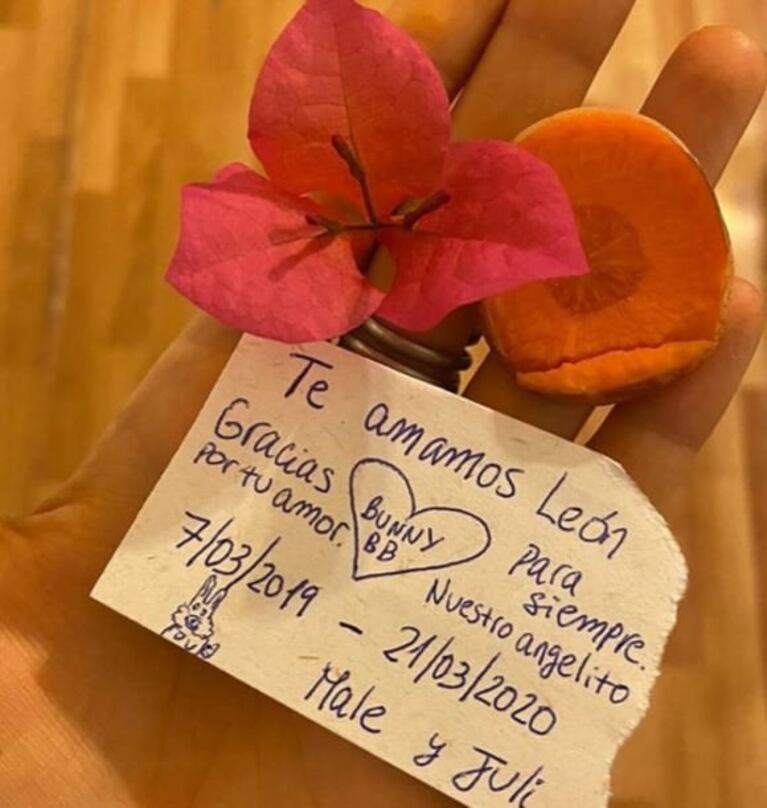 Te amamos León
Gracias
por tu amor.
BUNNY
BB
para
siempre.
Nuestro angelito
7/03/2019 - 21/03/2020
Male y Juli